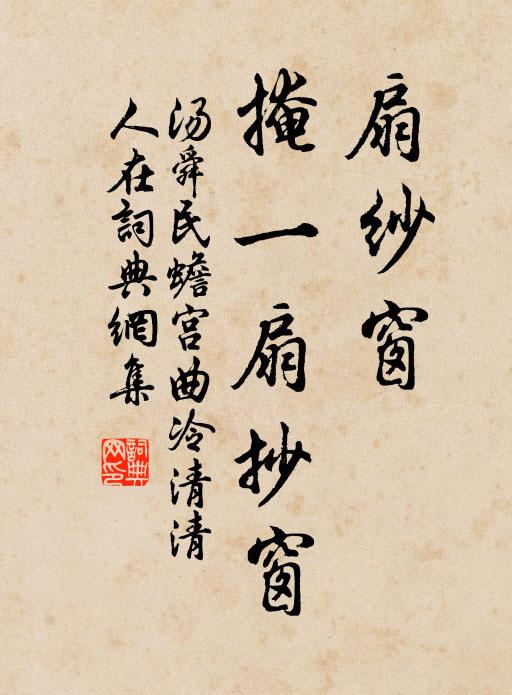 扇纱窗
掩一扇抄窗
汤舜民蟾宫曲冷清清
人在詞典網集
詞典网印